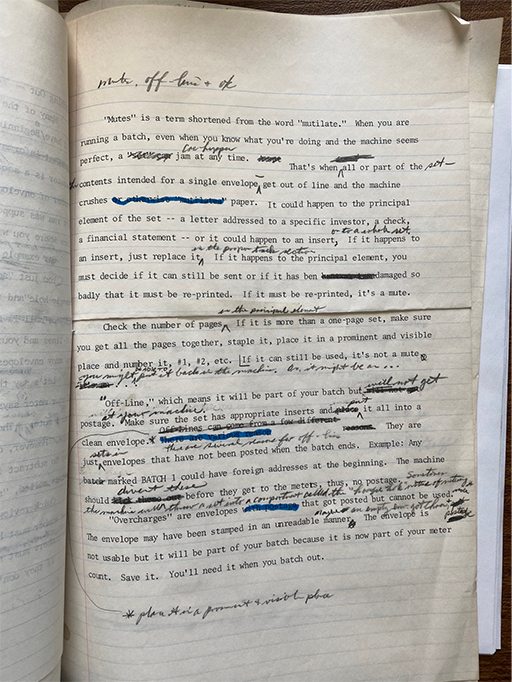 mute, off-line & ok
"Mutes" is a term shortened from the word "mutilate." When you are
running a batch, even when you know what you're doing and the machine seems
perfect, a jam at any time.
That's when all or part of the set—
contents intended for a single envelope get out of line and the machine
crushes paper. It could happen to the principal
element of the set -- a letter addressed to a specific investor, a check,
or to a whole set.
a financial statement -- or it could happen to an insert, If it happens to
in the proper section
an insert, just replace it If it happens to the principal element, you
must decide if it can still be sent or if it has ben damaged so
badly that it must be re-printed. If it must be re-printed, it's a mute.
in the principal element
Check the number of pages If it is more than a one-page set, make sure
you get all the pages together, staple it, place it in a prominent and visible
place and number it, #1, #2, etc. If it can still be used, it's not a mute
you might put it back in the machine. Or, it might be an ...
"Off-Line," which means it will be part of your batch but will not get
at your machine.
postage. Make sure the set has appropriate inserts and put it all into a
Off-Lines can come from a few different reasons. They are
clean envelope.*
There are several names for off-line
sets in
just envelopes that have not been posted when the batch ends. Example: Any
batch marked BATCH 1 could have foreign addresses at the beginning. The machine
should divert these before they get to the meters, thus, no postage. Sometimes
the machine will throw a set into a compartment called the
"Overcharges" are envelopes that got posted but cannot be used.
The envelope may have been stamped in an unreadable manner. The envelope is
not usable but it will be part of your batch because it is now part of your meter
count. Save it. You'll need it when you batch out.
* place it in a prominent & visible place